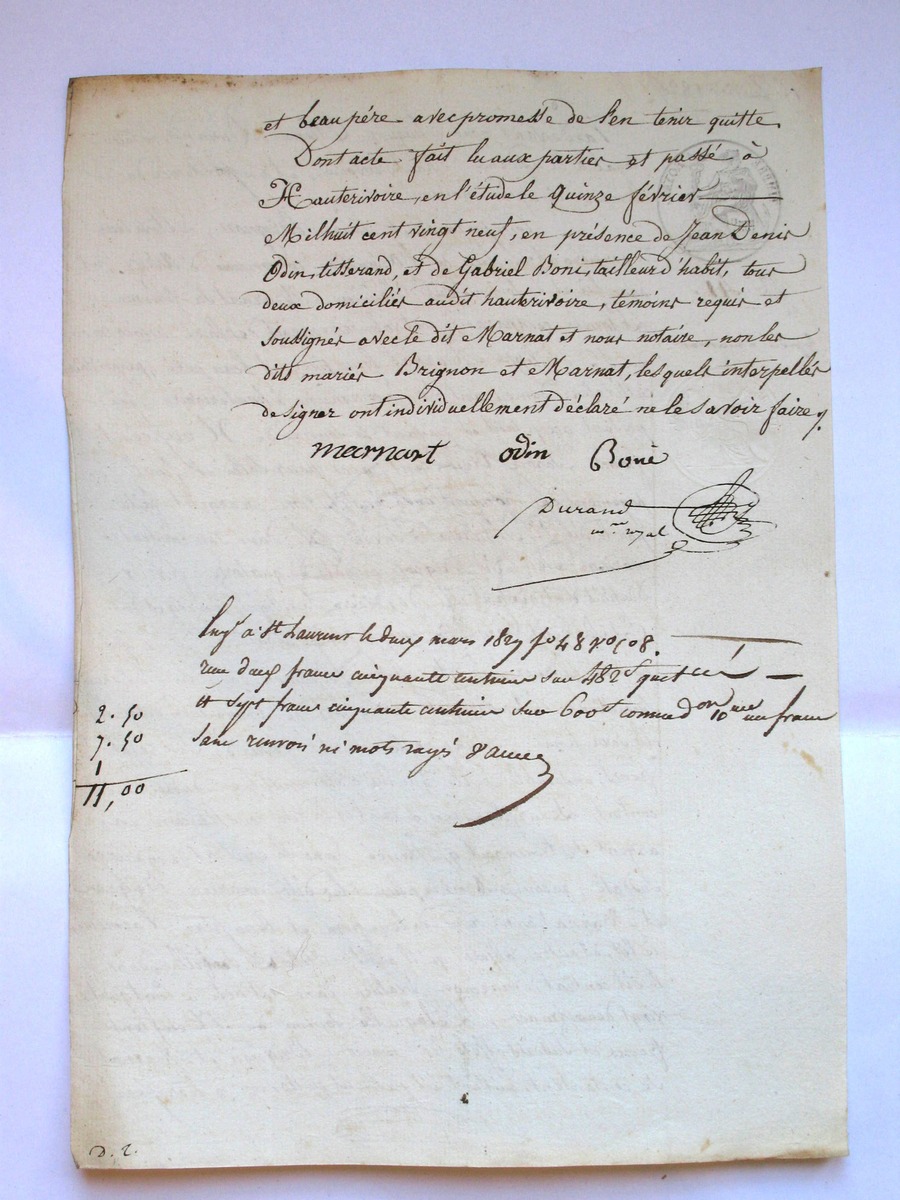 et beau pére avec promesse de l'en tenir quitte
Dont acte fait lu aux parties et passé à
Hauterivoire, en l'étude le quinze février
Mil huit cent vingt neuf, en présence de Jean Denis
Odin, tisserand, et de Gabriel Boni, tailleur d'habit, tous
deux domiciliés audit hauterivoire, témoins requis et
soussignés avec le dit Marnat et nous notaire, non les
dits mariés Brignon et Marnat, lesquels interpellés
de signer ont individuellement déclaré ne le savoir faire
marnart odin Boni
Durand
nre royal
Engé à St Laurent le deux mars 1829 fo 48 Vo C 08.
reçu deux francs cinquante centimes sur 482f quittancé
et sept francs cinquante centimes sur 600f 10me un franc
sans renvois ni mots rayés
2.50
7.50
1
11,00
D. 2.